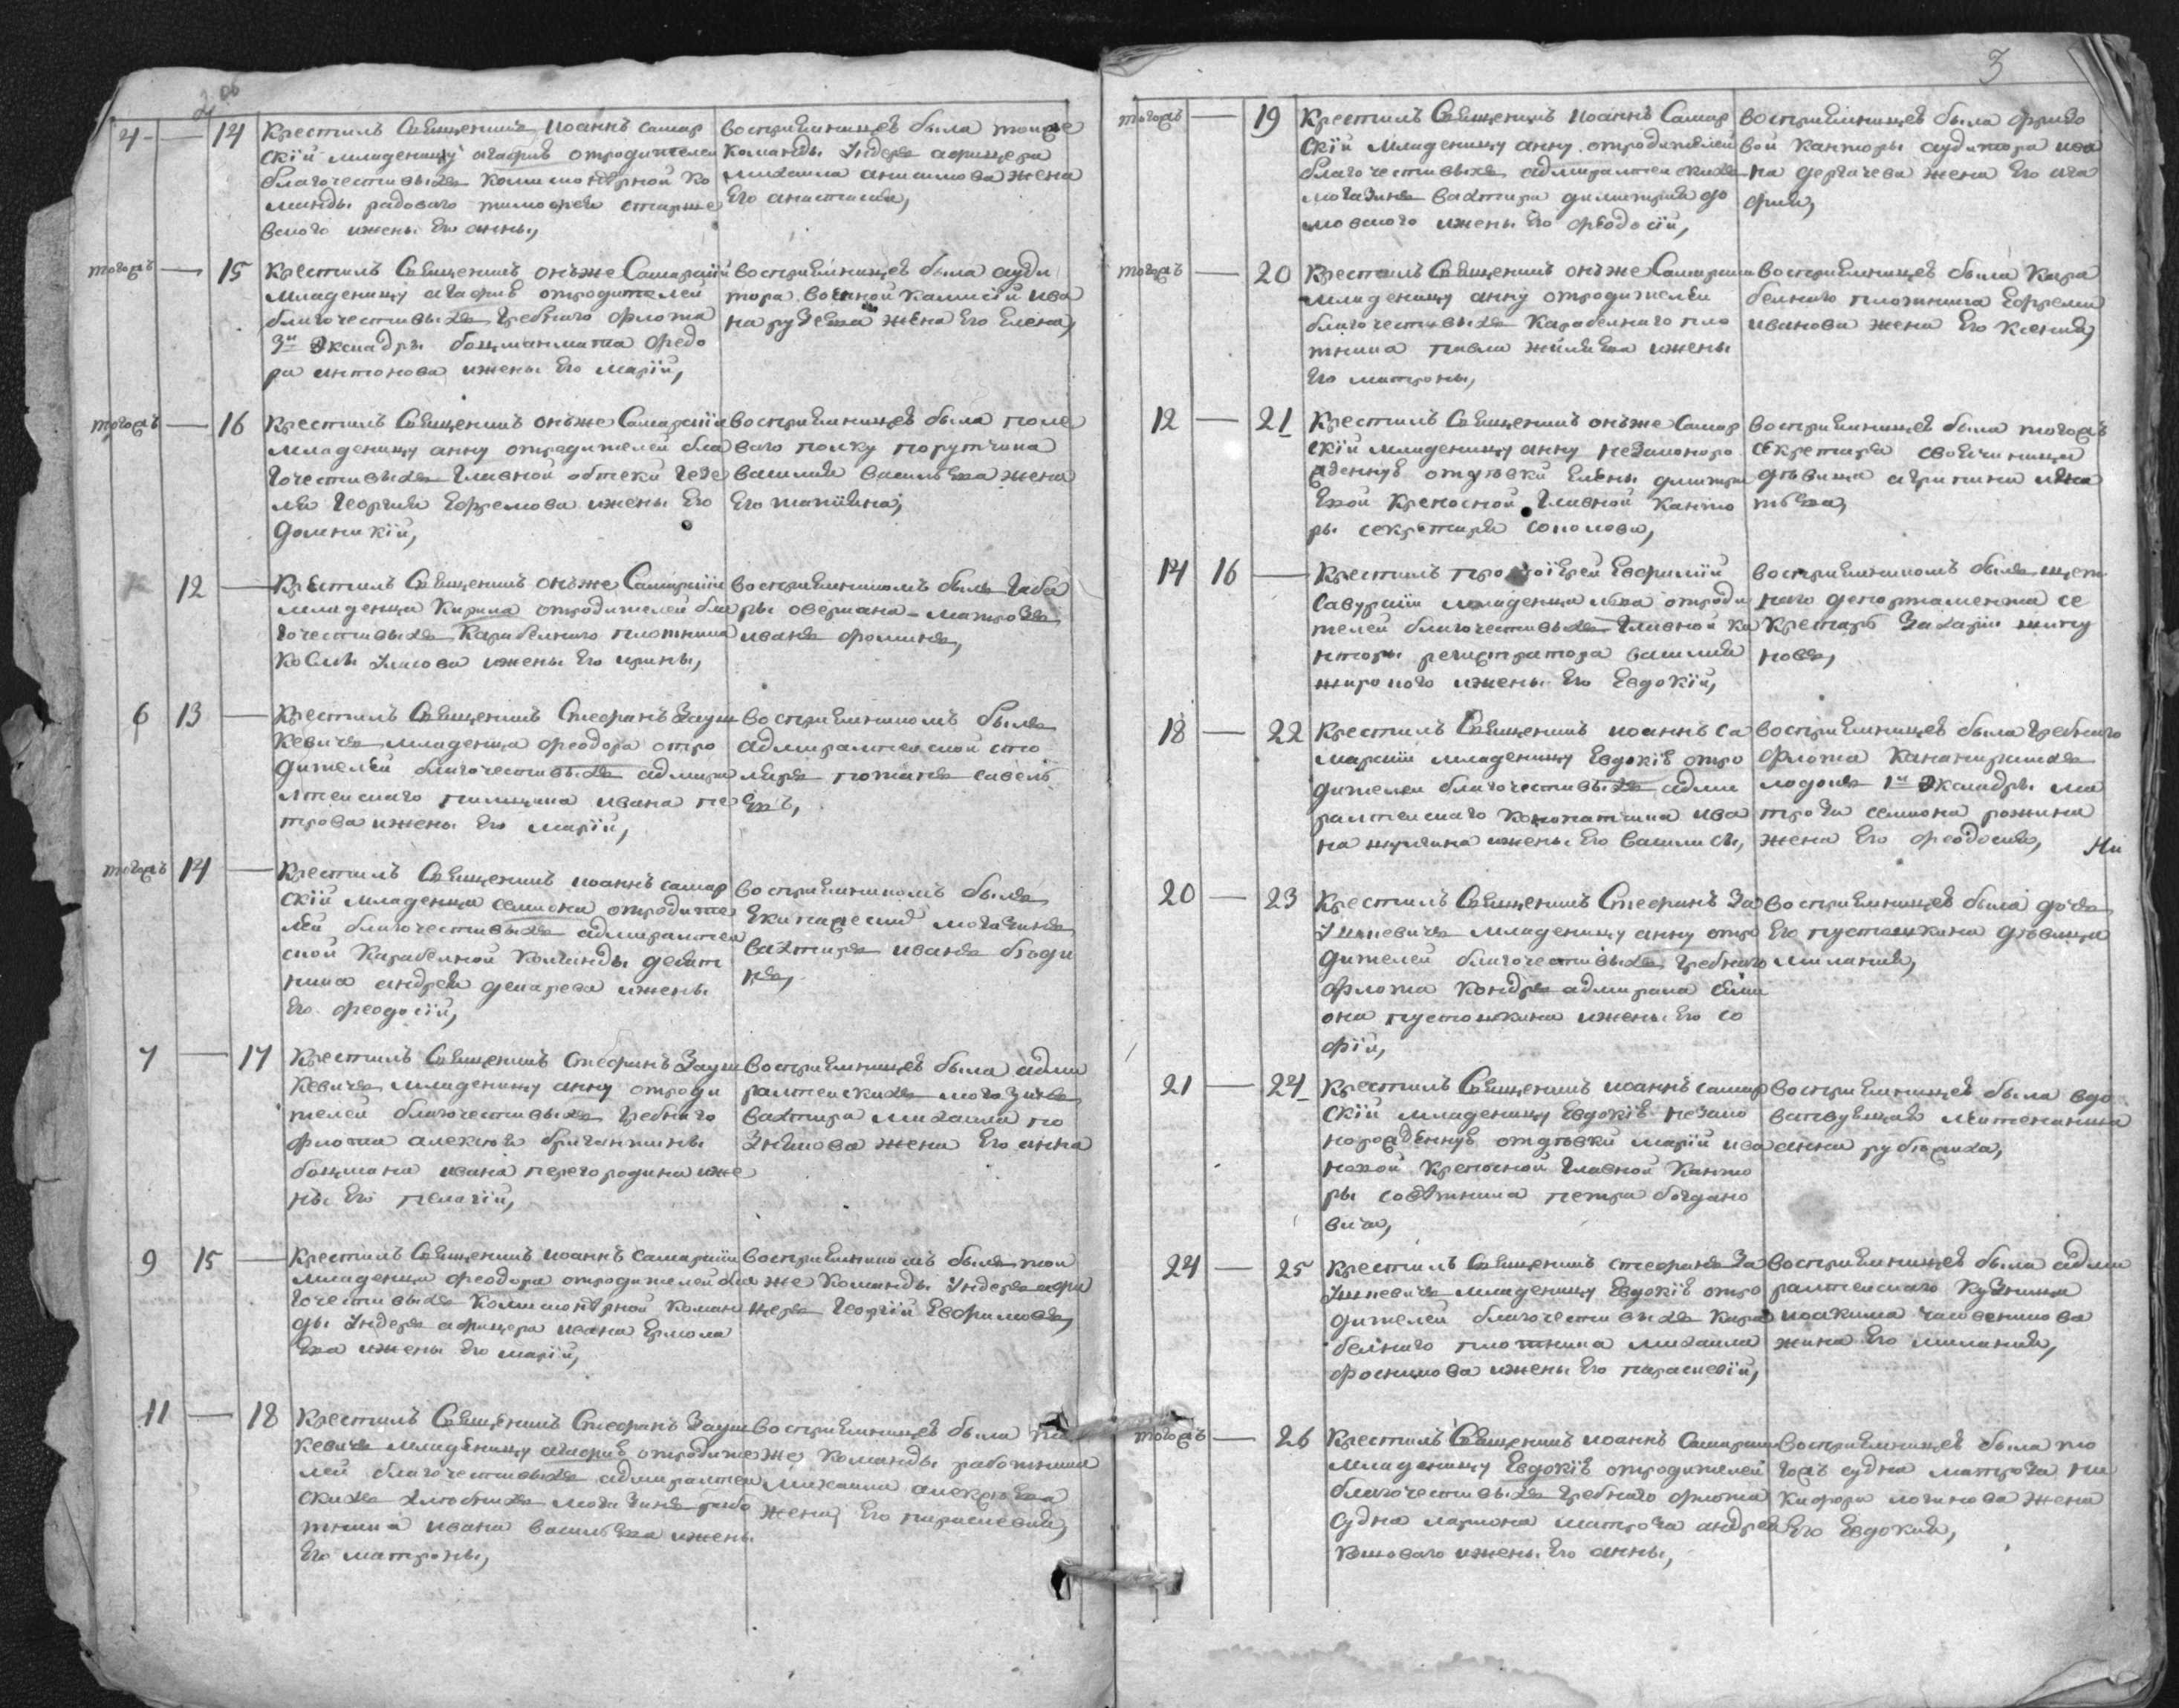 3
4 — 14 Крестилъ Священникъ иоаннъ самар
скій младеницу агафию отродителей
благочестивыхъ комисионерной ко
манды радоваго тимофея старже
вского ижены Его анны,
воспрыемницею была тоижъ
команды ундеръ афицера
михаила анисимова жена
Его анастасия,
тогожъ — 15 Крестилъ Священникъ онъже Самарскій
младеницу агафию отродителей
благочестивыхъ гребнаго флота
3й Экскадры боцманмата федо
ра антонова ижены Его маріи,
воспрыемницею была ауди
тора военной камисіи ива
на рузева жена Его Елена,
тогожъ — 16 Крестилъ Священникъ онъже Самарскій
младеницу анну отродителей бла
гочестивыхъ Главной обтеки гезе
ля Георгия Ефремова ижены Его
домникіи,
воспрыемницею была поле
ваго полку порутчика
василия васильева жена
Его татияна,
12 — Крестилъ Священникъ онъже Самарскій
младенца Кирила отродителей бла
гочестивыхъ Карабелнаго плотника
ковмы улисова ижены Его ирины,
воспрыемникомъ былъ габа
ры овермана матрозъ
иванъ фоминъ,
6 13 — Крестилъ Священникъ Стефанъ Зауш
кевичъ младенца феодора отро
дителей благочестивыхъ адмира
лтейскаго пилщика ивана пе
трова ижены Его маріи,
воспрыемникомъ былъ
адмиралтейской сто
ляръ потапъ савель
Евъ,
тогожъ 14 — Крестилъ Священникъ иоаннъ самар
скій младенца семиона отродите
лей благочестивыхъ адмиралтей
ской Карабелной команды десят
ника андрея декарева ижены
Его феодосіи,
воспрыемникомъ былъ
Екипажескиъ могазинъ
вахтиръ иванъ богди
нъ,
7 — 17 Крестилъ Священникъ стефанъ Зауш
кевичъ младеницу анну отроди
телей благочестивыхъ гребнаго
флота алексия бригантины
боцмана ивана перегородина иже
ны Его пелагіи,
воспрыемницею была адми
ралтейскихъ могазинъ
вахтира михаила по
знякова жена Его анна
9 15 — Крестилъ Священникъ иоаннъ самарскій
младенца феодора отродителей бла
гочестивыхъ комисионерной коман
ды ундеръ афицера ивана Ермола
Ева ижены Его маріи,
воспрыемникомъ былъ тои
же команды ундеръ афи
церъ Георгіи Евфимовъ,
11 — 18 Крестилъ Священникъ Стефанъ Зауш
кевичъ младеницу агафию отродите
лей благочестивыхъ адмиралтей
скихъ хлебныхъ могазинъ рабо
тника ивана васильева ижены
Его матроны,
воспрыемницею была той
же команды работника
михаила алексеева
жена Его параскевия,
тогожъ — 19 Крестилъ Священникъ иоаннъ Самар
скій младеницу анну отродителей
благочестивыхъ адмиралтейскихъ
могазинъ вахтира димитрия до
мовского ижены Его феодосіи,
воспрыемницею была фриго
вой канторы аудитора ива
на дергачева жена Его ага
фия,
тогожъ — 20 Крестилъ Священникъ онъже Самарскій
младеницу анну отродителей
благочестивыхъ Карабелнаго пло
тника павла жиляева ижены
Его матроны,
воспрыемницею была Кара
белнаго плотника Ефрема
иванова жена Его Ксения,
12 — 21 Крестилъ Священникъ онъже Самар
скій младеницу анну незаконоро
жденную отдевки Елены дмитри
Евой крепосной Главной канто
ры секретаря соколова,
воспрыемницею была тогожъ
секретаря своячиница
девица агрипина игна
тьева,
14 16 — Крестилъ протоіерей Евфимій
Савурскій младенца льва отроди
телей благочестивыхъ Главной ка
нторы регистратора василия
жирского ижены Его Евдокіи,
воспрыемникомъ былъ щет
наго департамента се
кретаръ Захарій
новъ,
18 — 22 Крестилъ Священникъ иоаннъ са
марскій младеницу Евдокію отро
дителей благочестивыхъ адми
ралтейскаго конопатчика ива
на журкина ижены Его василисы,
воспрыемницею была гребнаго
флота канапирскихъ
лодокъ 1й Экскадры ма
троза семиона рожкина
жена Его феодосия,
Ни
20 — 23 Крестилъ Священникъ Стефанъ За
ушкевичъ младеницу анну отро
дителей благочестивыхъ гребнаго
флота контръ адмирала семи
она пустошкина ижены Его со
фіи,
воспрыемницею была дочь
Его пустошкина девица
милания,
21 — 24 Крестилъ Священникъ иоаннъ самар
скій младеницу Евдокію незако
норожденную отдевки маріи ива
новой крепосной Главной канто
ры советника петра богдано
вича,
воспрыемницею была вдо
вствующая леитенанша
анна рубцовха,
24 — 25 Крестилъ Священникъ стефанъ За
ушкевичъ младеницу Евдокію отро
дителей благочестивыхъ кара
белнаго плотника михаила
фоснимова ижены Его параскевіи,
воспрыемницею была адми
ралтейскаго кузнеца
иоакима часовенкова
жина Его милания,
тогожъ — 26 Крестилъ Священникъ иоаннъ Самарскій
младеницу Евдокію отродителей
благочестивыхъ гребнаго флота
судна лариона матроза андрея
кошоваго ижены Его анны,
воспрыемницею была то
гожъ судна матроза ни
кифора логинова жена
Его Евдокия,